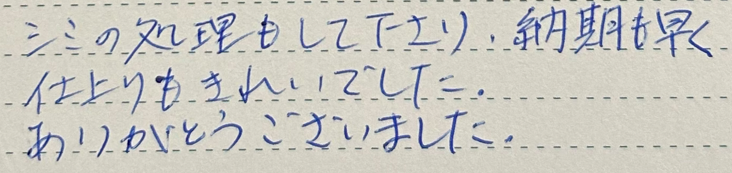 シミの処理もして下さり、納期も早く
仕上りもきれいでした。
ありがとうございました。